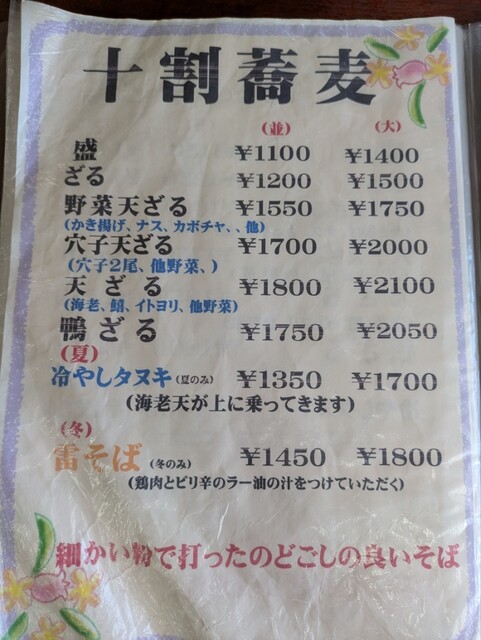 十割蕎麦
（並） （大）
盛 ¥1100 ¥1400
ざる ¥1200 ¥1500
野菜天ざる ¥1550 ¥1750
(かき揚げ、ナス、カボチャ、、他)
穴子天ざる ¥1700 ¥2000
(穴子2尾、他野菜、)
天ざる ¥1800 ¥2100
(海老、鱚、イトヨリ、他野菜)
鴨ざる ¥1750 ¥2050
(夏)
冷やしタヌキ (夏のみ) ¥1350 ¥1700
(海老天が上に乗ってきます)
(冬)
雷そば (冬のみ) ¥1450 ¥1800
(鶏肉とピリ辛のラー油の汁をつけていただく)
細かい粉で打ったのどごしの良いそば